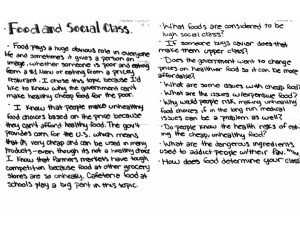 Food and Social Class.
Food plays a huge obvious role in everyone
life and sometimes it gives a person an
image. Whether someone is poor and eating
from a $1 menu or eating from a pricey
restaurant. I chose this topic because I'd
like to know why the government can't
make healthy cheap food for the poor.
I know that people make unhealthy
food choices based on the price because
they can't afford healthy food. The gov't
provides corn for the U.S. which means
that its very cheap and can be used in many
products - even though its not a healthy choice
I know that farmers markets have tough
competition because food at other grocery
stores are so unhealthy. Cafeteria food at
schools play a big part in this topic.
- What foods are considered to be
high social class?
- If someone buys caviar does that
make them upper class?
- Does the government want to change
prices on healthier food so it can be more
affordable?
- What are some issues with cheap food?
- What are the issues w/ expensive food?
- Why would people risk making unhealthy
food choices if in the long run medical
issues can be a problem as well?
- Do people know the health risks of eat
ing the cheap, unhealthy food?
- What are the dangerous ingredients
used to addict people w/ their fav.
- How does food determine your class